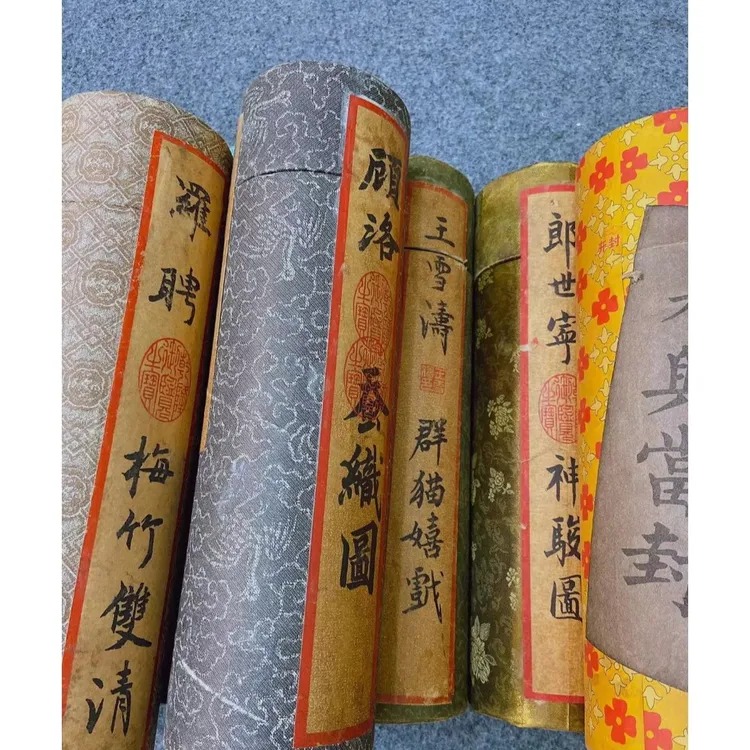 羅聘
梅竹雙清
顧洛
蚕織圖
王雪濤
群猫嬉戲
郎世寧
神駿圖
开封
與當
封